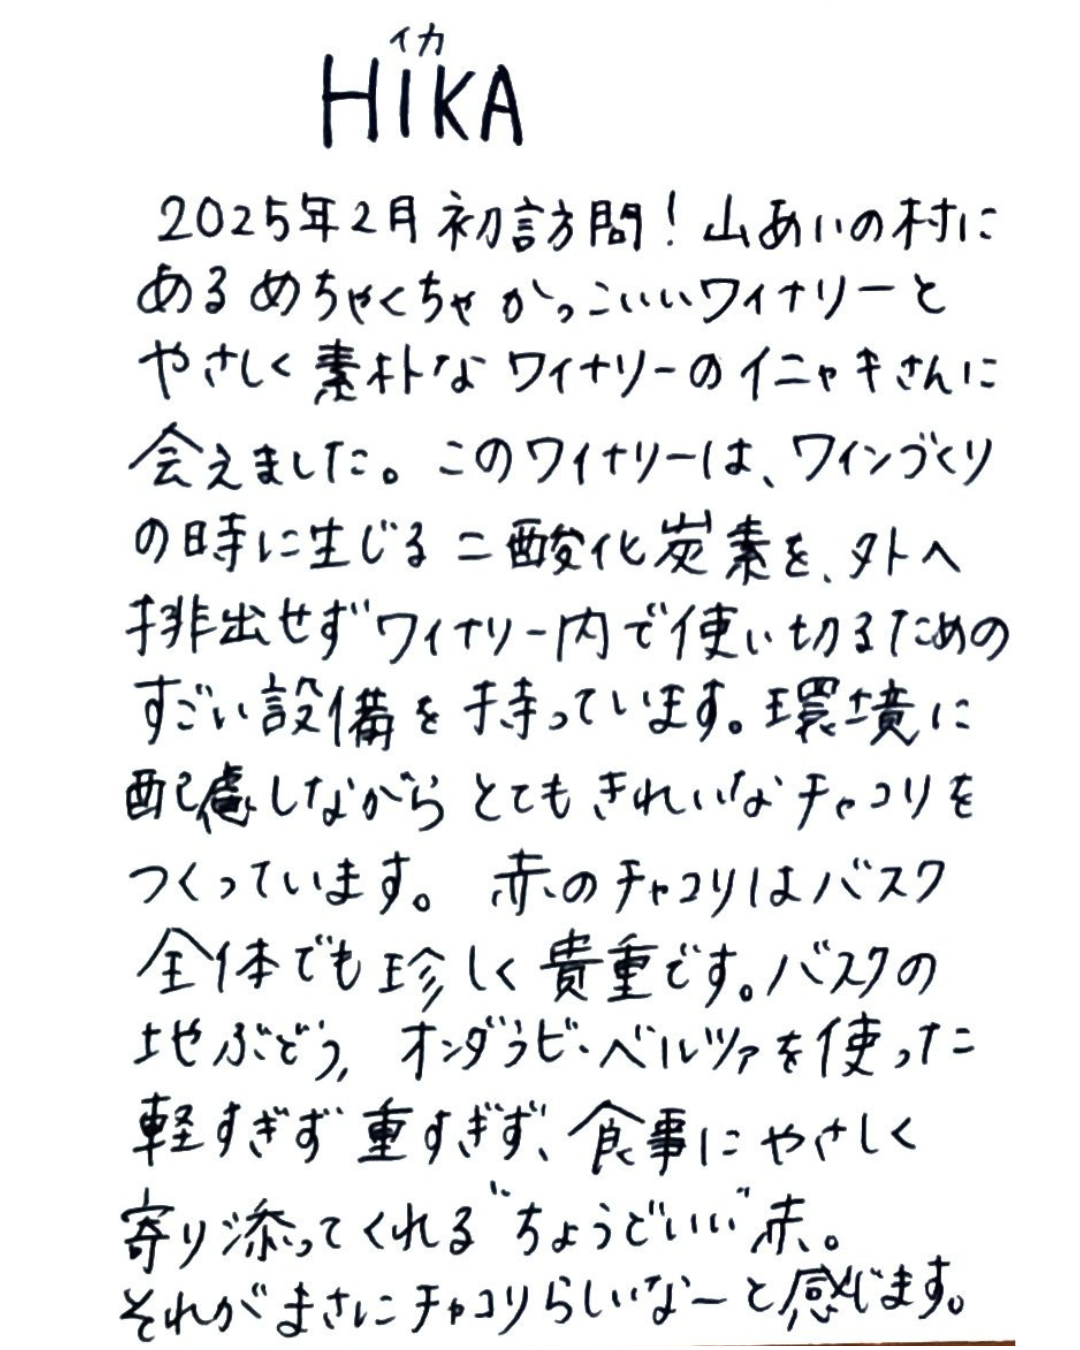 イカ
HIKA
2025年2月 初訪問！山あいの村に
あるめちゃくちゃかっこいいワイナリーと
やさしく素朴なワイナリーのイニャキさんに
会えました。このワイナリーは、ワインづくり
の時に生じる二酸化炭素を、外へ
排出せずワイナリー内で使い切るための
すごい設備を持っています。環境に
配慮しながらとてもきれいなチャコリを
つくっています。 赤のチャコリはバスク
全体でも珍しく貴重です。バスクの
地ぶどう, オンダラビ・ベルツァを使った
軽すぎず重すぎず、食事にやさしく
寄り添ってくれる〝ちょうどいい〟赤。
それがまさにチャコリらしいなーと感じます。